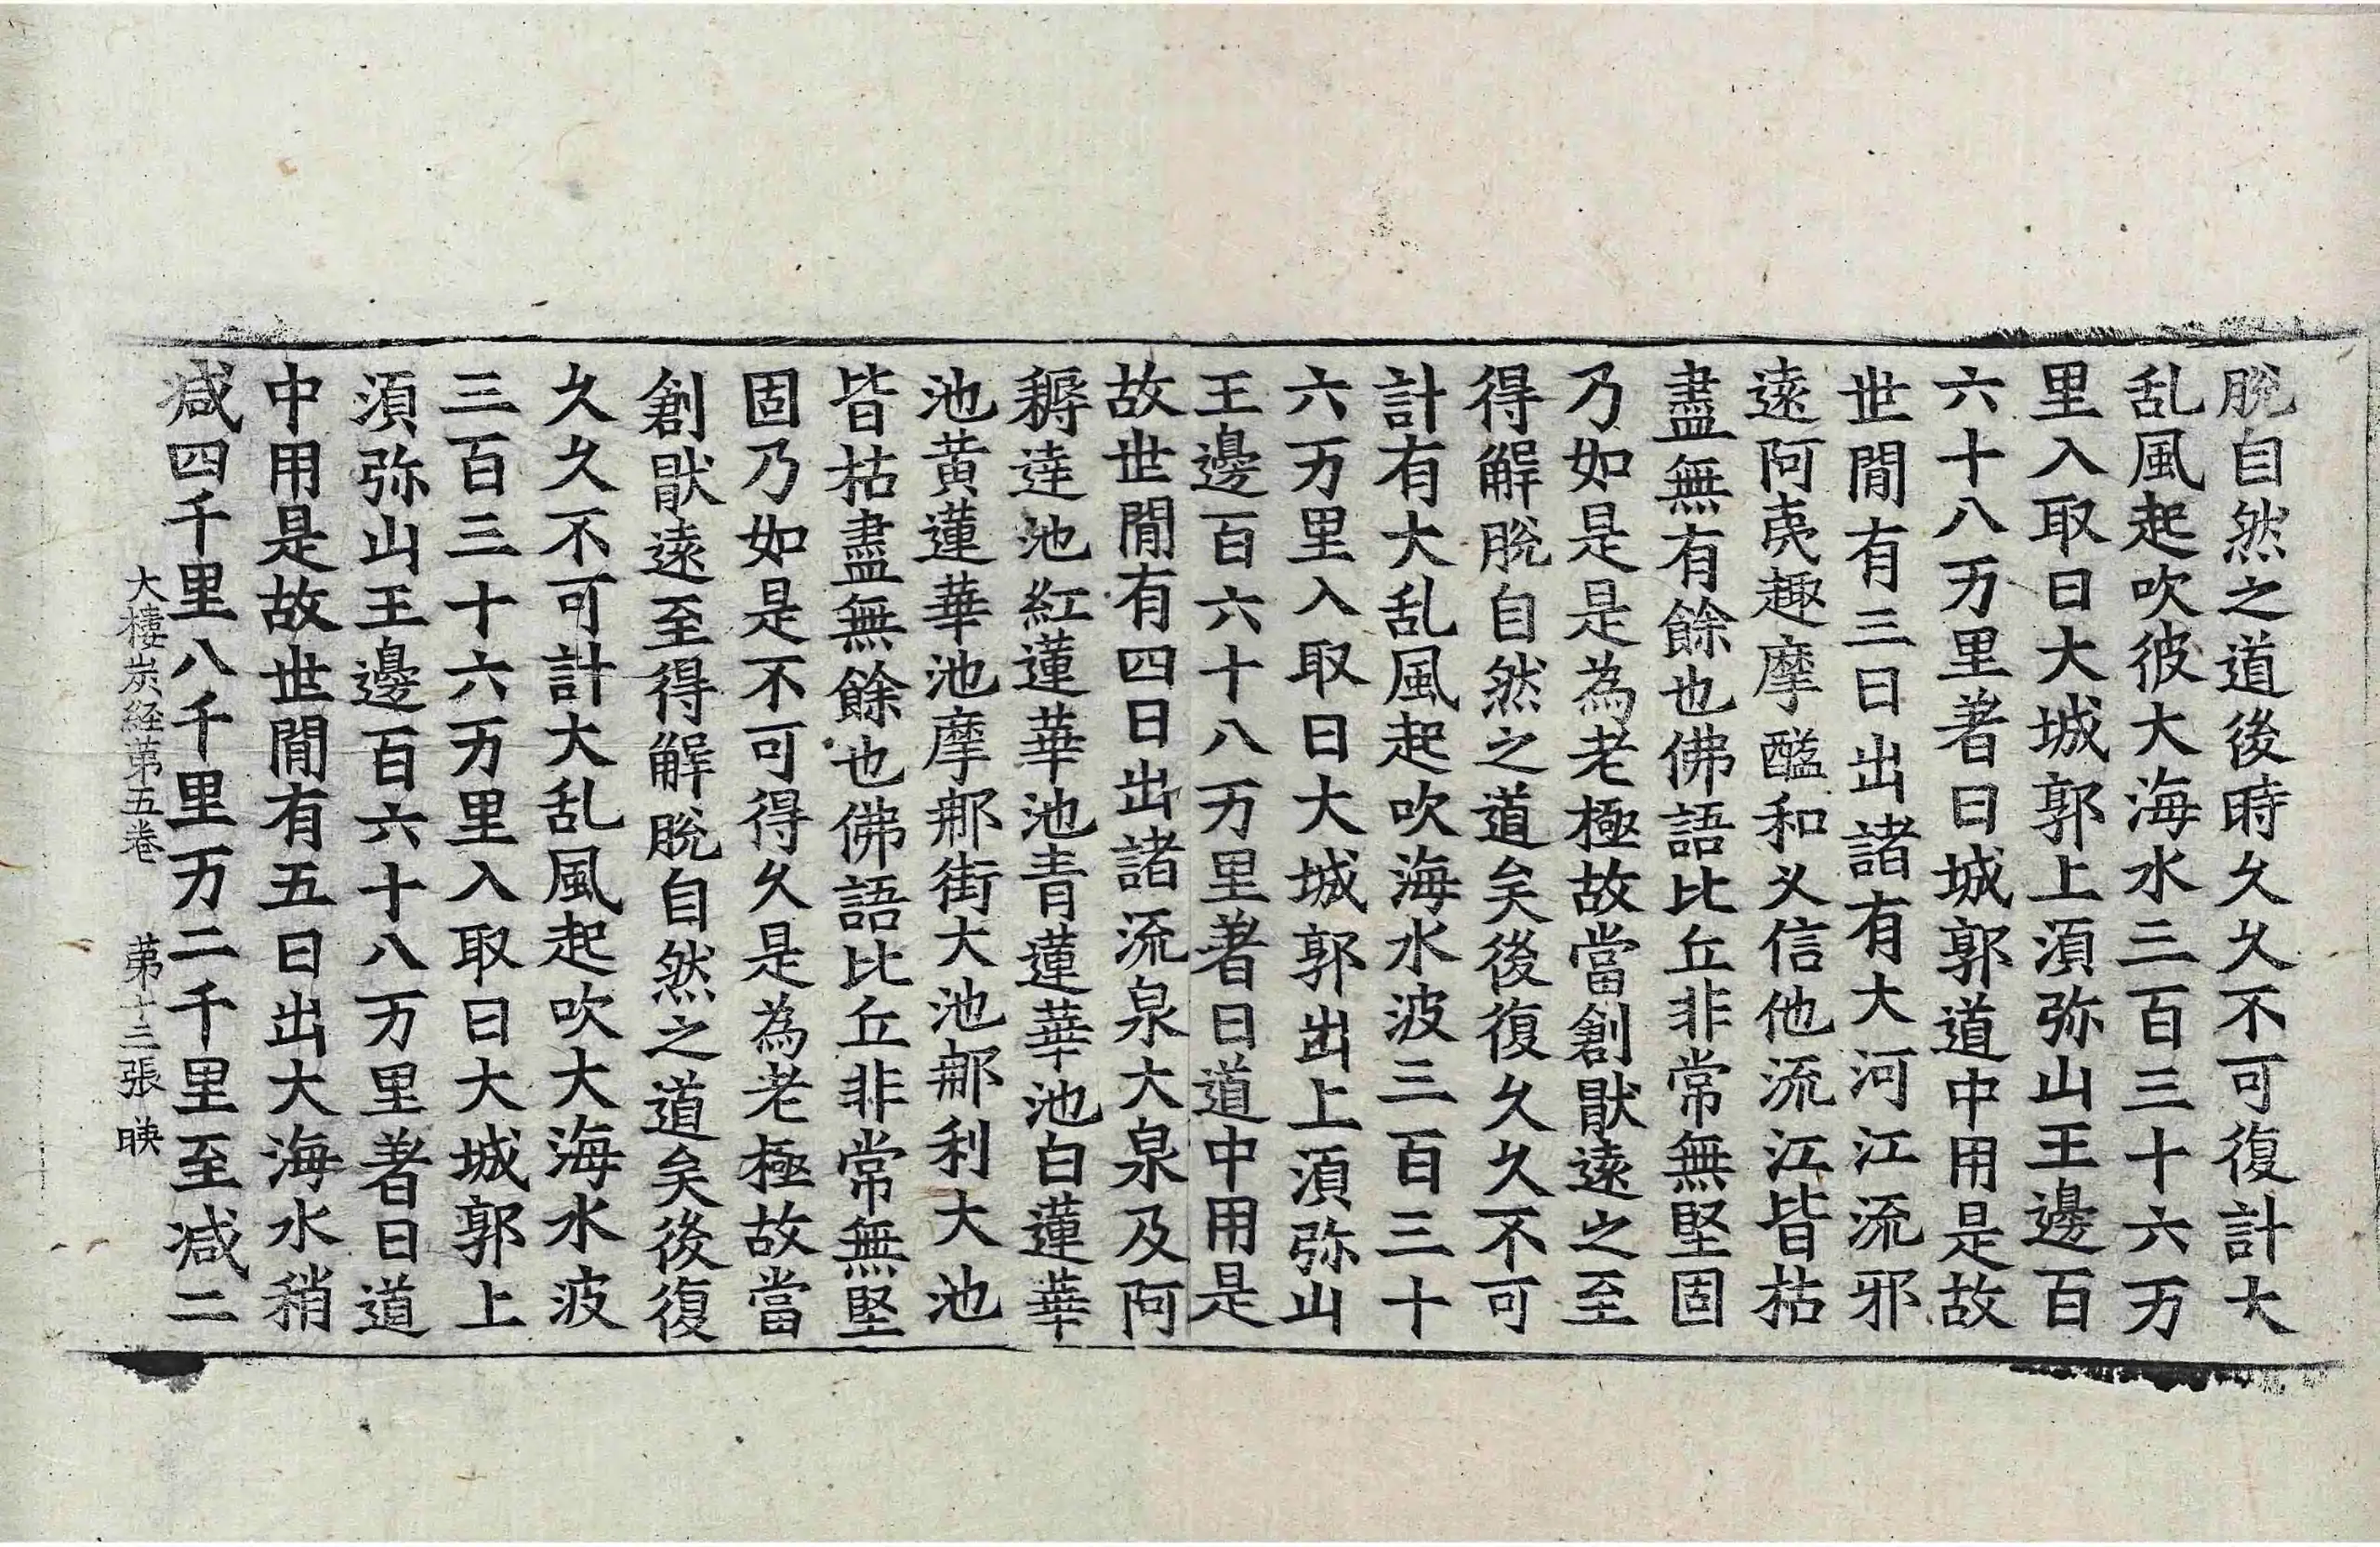 脫自然之道後時久久不可復計大
乱風起吹彼大海水三百三十六万
里入取日大城郭上湏弥山王邊百
六十八万里著日城郭道中用是故
世閒有三日出諸有大河江流邪
遠阿夷趣摩醯和义信他流江皆枯
盡無有餘也佛語比丘非常無堅固
乃如是是為老極故當創猒遠之至
得解脫自然之道矣後復久久不可
計有大乱風起吹海水波三百三十
六万里入取日大城郭出上湏弥山
王邊百六十八万里著日道中用是
故世閒有四日出諸流泉大泉及阿
耨達池紅蓮華池青蓮華池白蓮華
池黄蓮華池摩鄁街大池鄁利大池
皆枯盡無餘也佛語比丘非常無堅
固乃如是不可得久是為老極故當
創猒遠至得解脫自然之道矣後復
久久不可計大乱風起吹大海水波
三百三十六万里入取日大城郭上
湏弥山王邊百六十八万里著日道
中用是故世閒有五日出大海水稍
减四千里八千里万二千里至减二
大樓炭経苐五卷 苐十三張 映